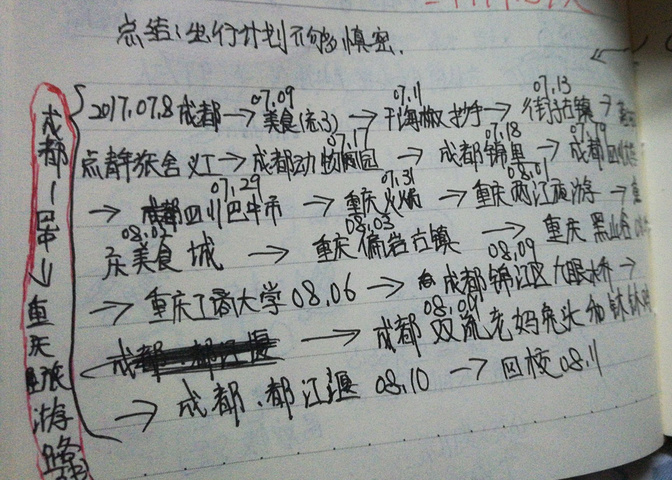 总结:出行计划不够慎密.
成都-巴中-重庆旅游路
2017.07.8成都→美食 07.09→干海椒抄手 07.11→街子古镇 07.13→
点静旅舍义工→成都动物园 07.17→成都锦里 07.18→成都 07.19
→四川巴中市 07.29→重庆火锅 07.31→重庆两江旅游 08.01→
东美食城 08.02→重庆偏岩古镇 08.03→重庆黑山谷
→重庆工商大学08.06→成都锦江区九眼桥 08.09→
→成都双流老妈兔头和钵钵鸡 08.09
→成都.都江堰 08.10→回校08.11